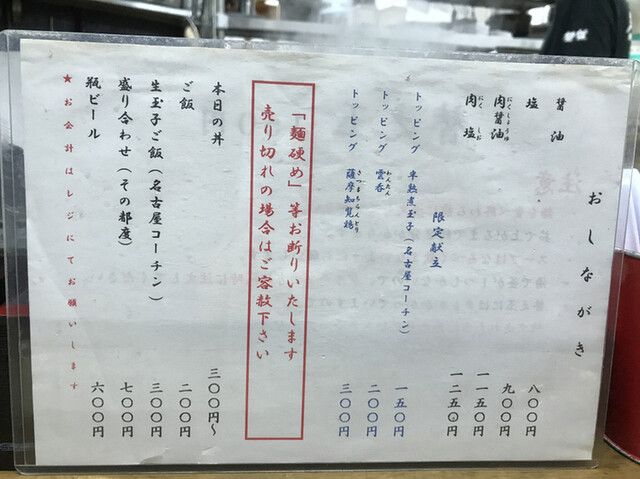 おしながき
醤油 八〇〇円
塩 九〇〇円
肉醤油 にくしょうゆ 一一五〇円
肉塩 にくしお 一二五〇円
限定献立
トッピング 半熟煮玉子(名古屋コーチン) 一五〇円
トッピング 雲呑 わんたん 二〇〇円
トッピング 薩摩知覧鶏 さつまちらんどり 三〇〇円
「麺硬め」等お断りいたします
売り切れの場合はご容赦下さい
本日の丼 三〇〇円～
ご飯 二〇〇円
生玉子ご飯(名古屋コーチン) 三〇〇円
盛り合わせ(その都度) 七〇〇円
瓶ビール 六〇〇円
★お会計はレジにてお願いします